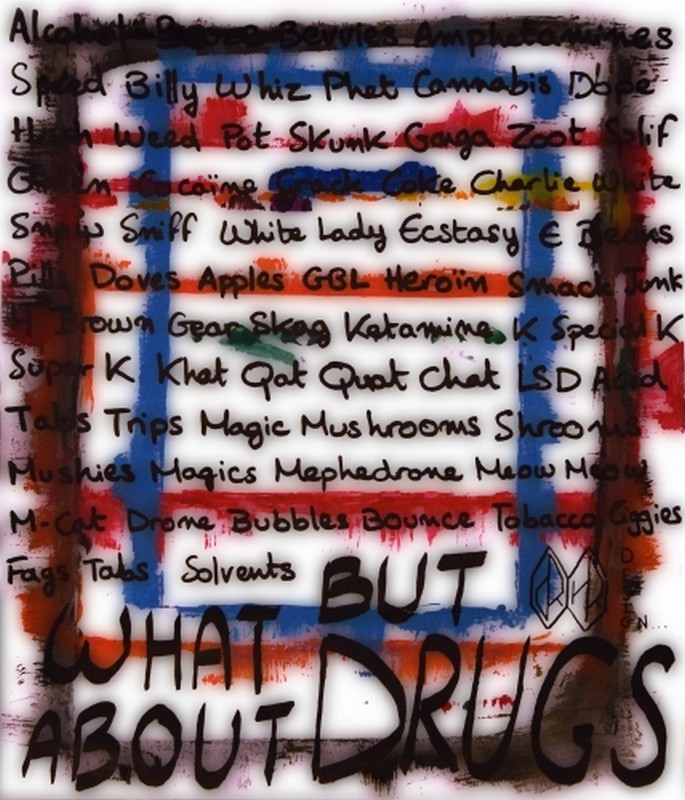 Alcohol Booze Bevvies Amphetamines
Speed Billy Whiz Phet Cannabis Dope
Hash Weed Pot Skunk Ganga Zoot Splif
Green Cocaïne Crack Coke Charlie White
Snow Sniff White Lady Ecstasy E Beans
Pills Doves Apples GBL Heroïn Smack Junk
H Brown Gear Skag Ketamine K Special K
Super K Khat Qat Quat Chat LSD Acid
Tabs Trips Magic Mushrooms Shrooms
Mushies Magics Mephedrone Meow Meow
M-Cat Drone Bubbles Bounce Tobacco Ciggies
Fags Tabs Solvents
BUT
WHAT
ABOUT DRUGS